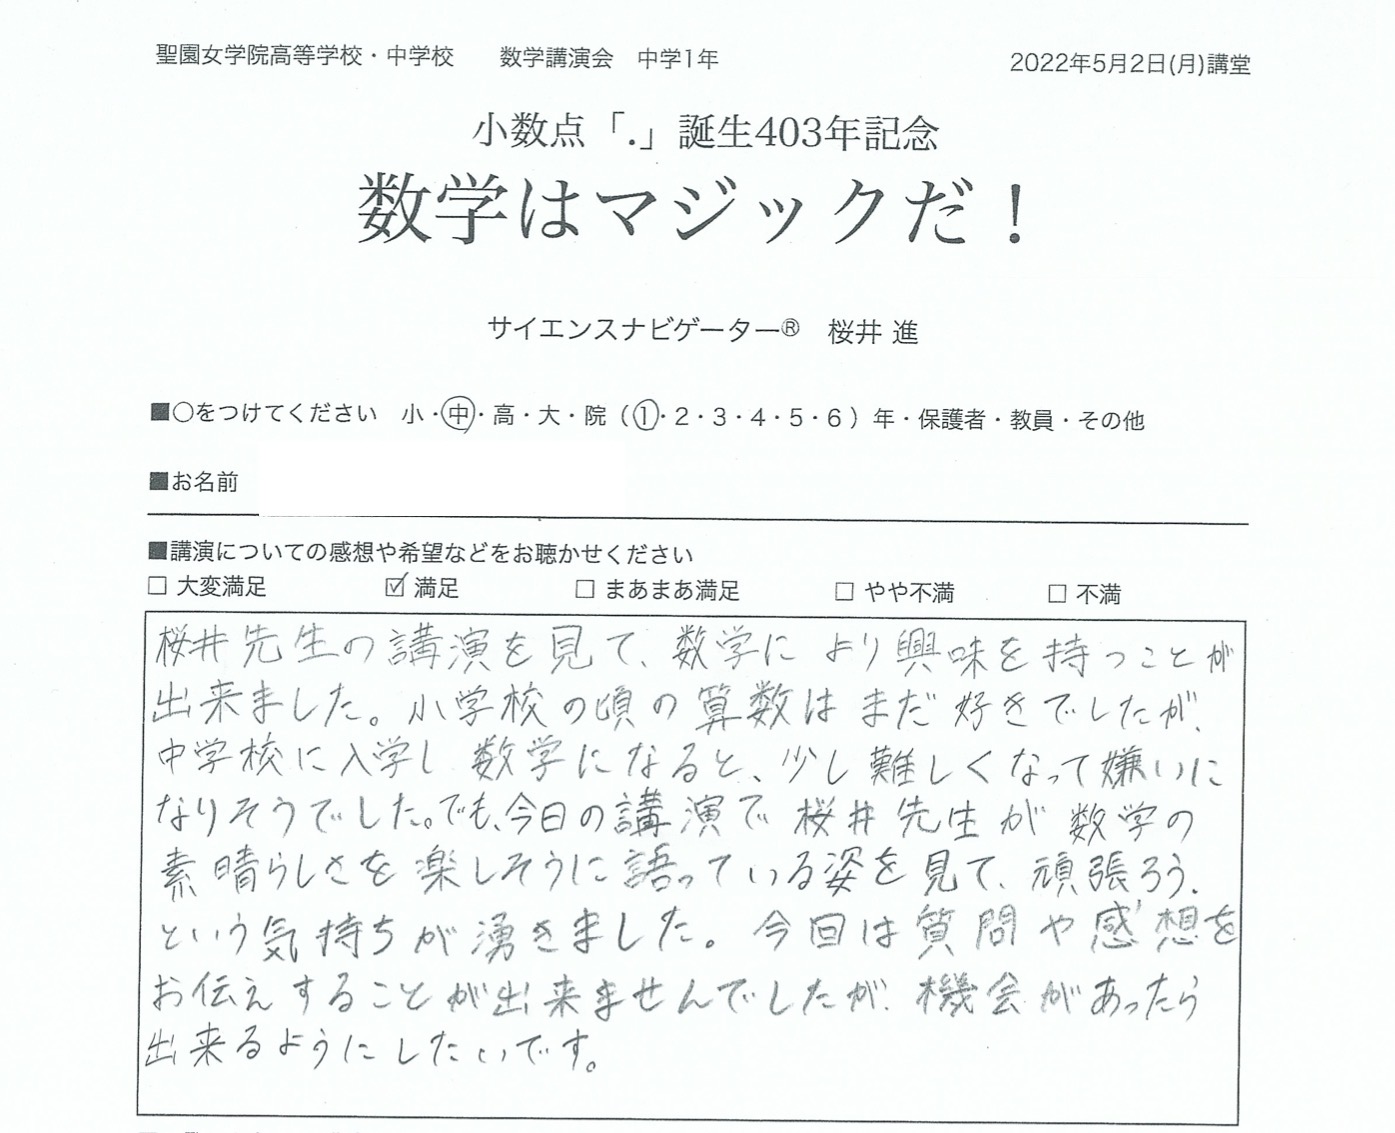 聖園女学院高等学校・中学校　数学講演会　中学1年　2022年5月2日(月)講堂
小数点「.」誕生403年記念
数学はマジックだ！
サイエンスナビゲーター®　桜井 進
■○をつけてください　小・中・高・大・院（1・2・3・4・5・6）年・保護者・教員・その他
■お名前
■講演についての感想や希望などをお聴かせください
□ 大変満足　☑ 満足　□ まあまあ満足　□ やや不満　□ 不満
桜井先生の講演を見て、数学により興味を持つことが
出来ました。小学校の頃の算数はまだ好きでしたが、
中学校に入学し数学になると、少し難しくなって嫌いに
なりそうでした。でも、今日の講演で桜井先生が数学の
素晴らしさを楽しそうに語っている姿を見て、頑張ろう、
という気持ちが湧きました。今回は質問や感想を
お伝えすることが出来ませんでしたが、機会があったら
出来るようにしたいです。